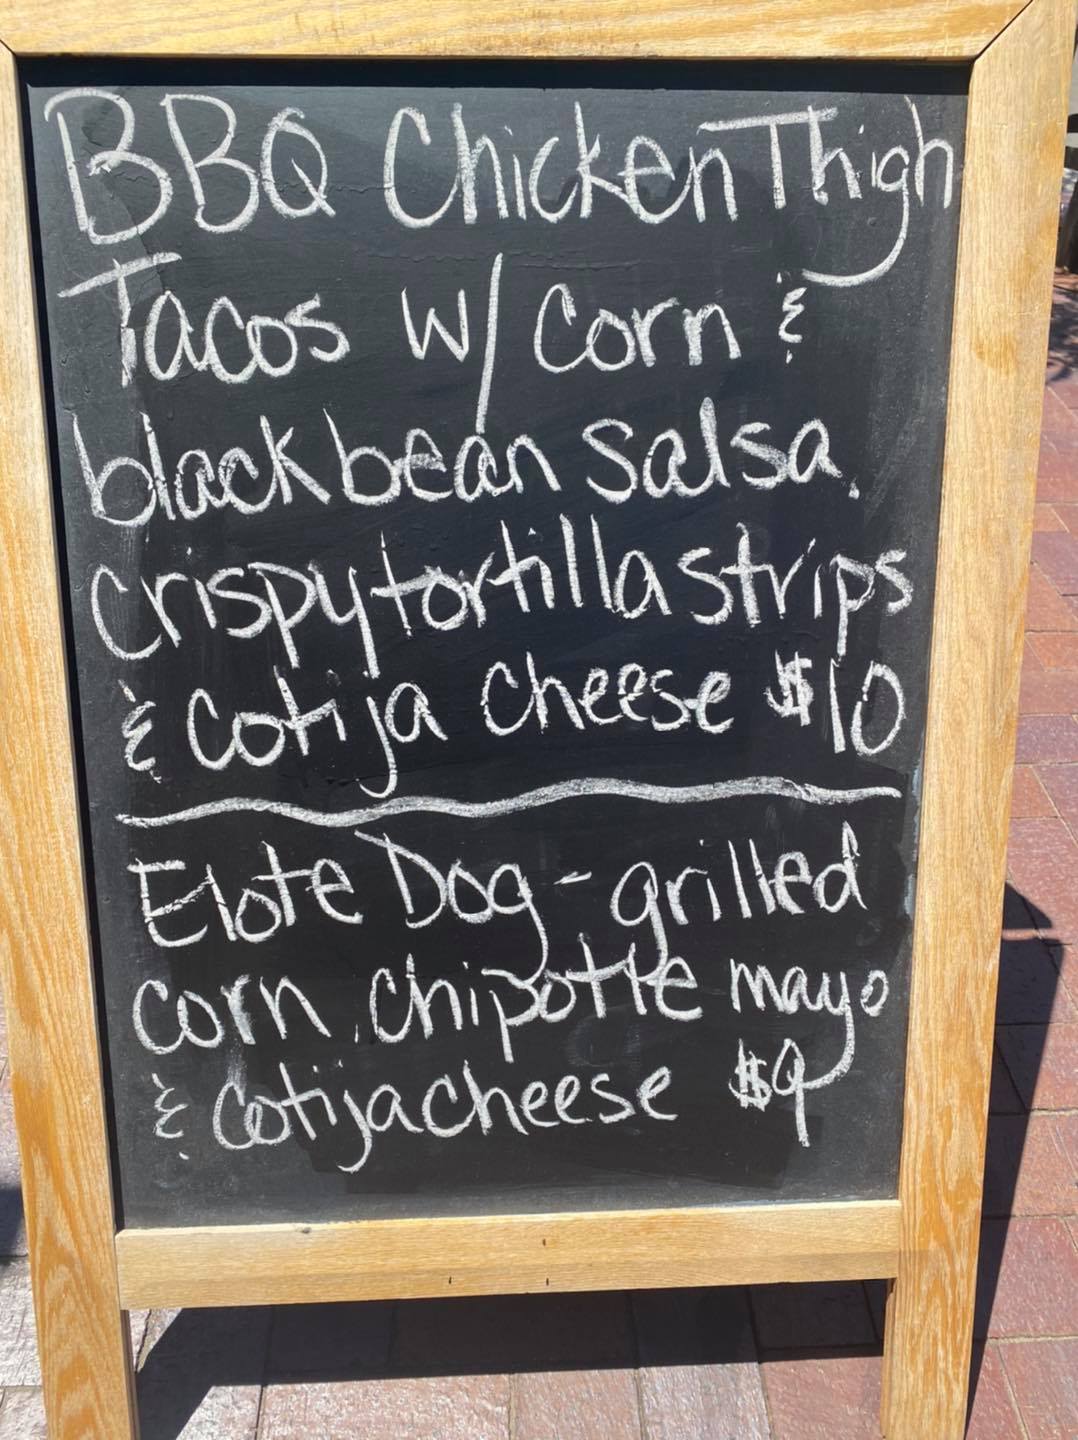 BBQ Chicken Thigh
Tacos w/ Corn &
black bean salsa.
crispy tortilla strips
& Cotija cheese $10
Elote Dog - grilled
corn, chipotle mayo
& Cotija cheese $9